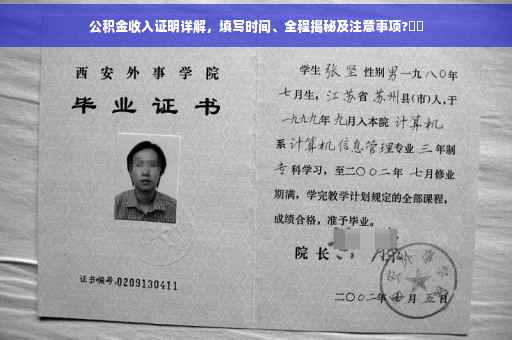 公积金收入证明详解，填写时间、全程揭秘及注意事项?
西安外事学院
毕业证书
证书编号:0209130411
学生 张坚 性别 男 一九八〇年
七月生，江苏省 苏州 县(市)人，于
一九九九年 九月入本院 计算机
系 计算机信息管理 专业 三 年制
专科学习，至二〇〇二年 七月修业
期满，学完教学计划规定的全部课程，
成绩合格，准予毕业。
院长
二〇〇二年 月 五日